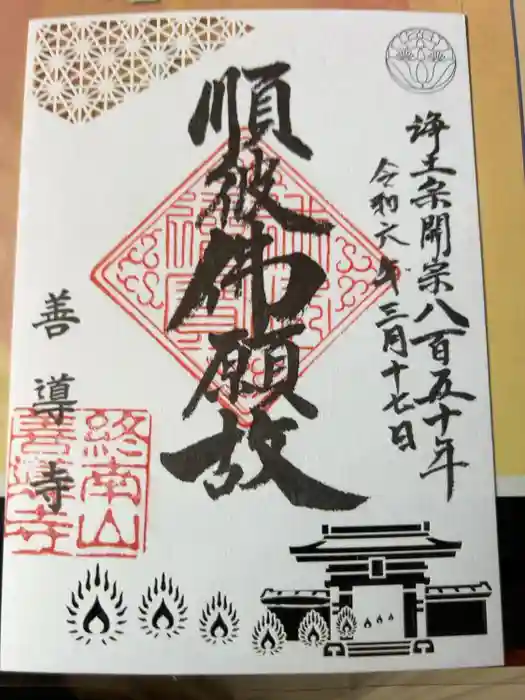 浄土宗開宗八百五十年
令和六年三月十七日
順彼佛願故
善導寺
終南山
善導寺